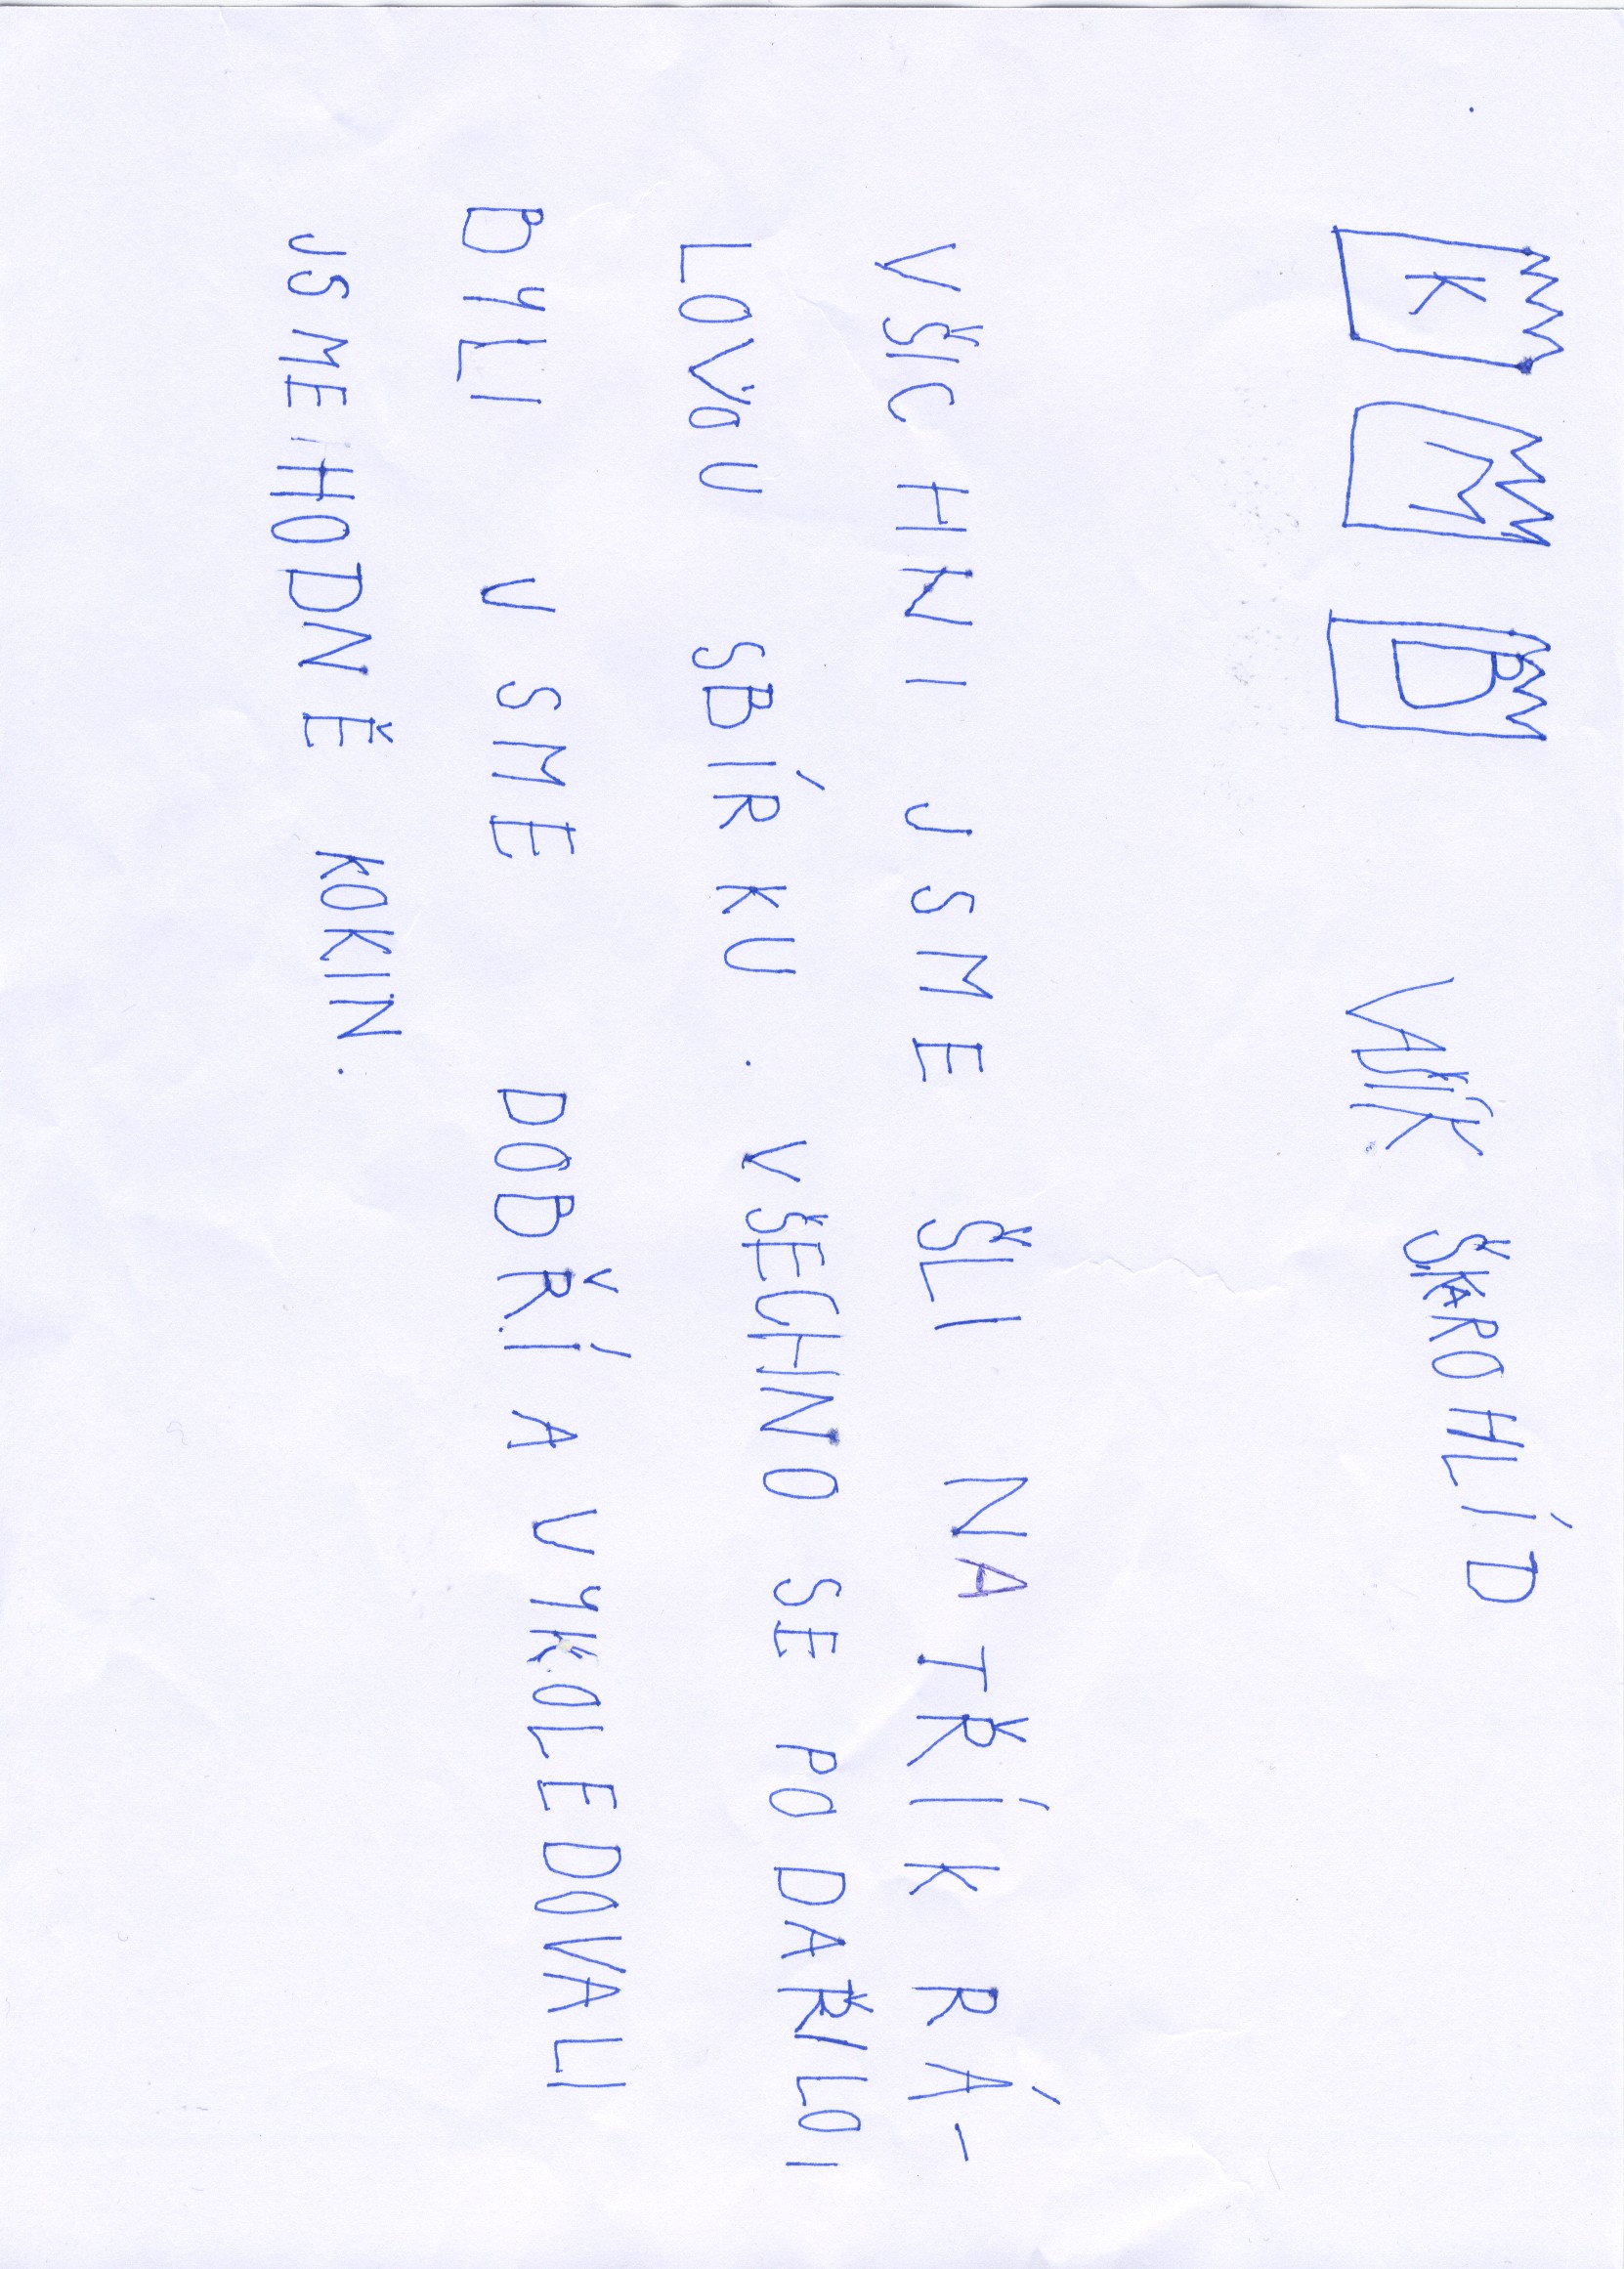 K M B VAŠÍK ŠKAROHLÍD
VŠICHNI JSME ŠLI NA TŘÍKRÁ-
LOVOU SBÍRKU. VŠECHNO SE PODAŘILO I
BYLI JSME DOBŘÍ A VYKOLEDOVALI
JSME HODNĚ KOKIN.